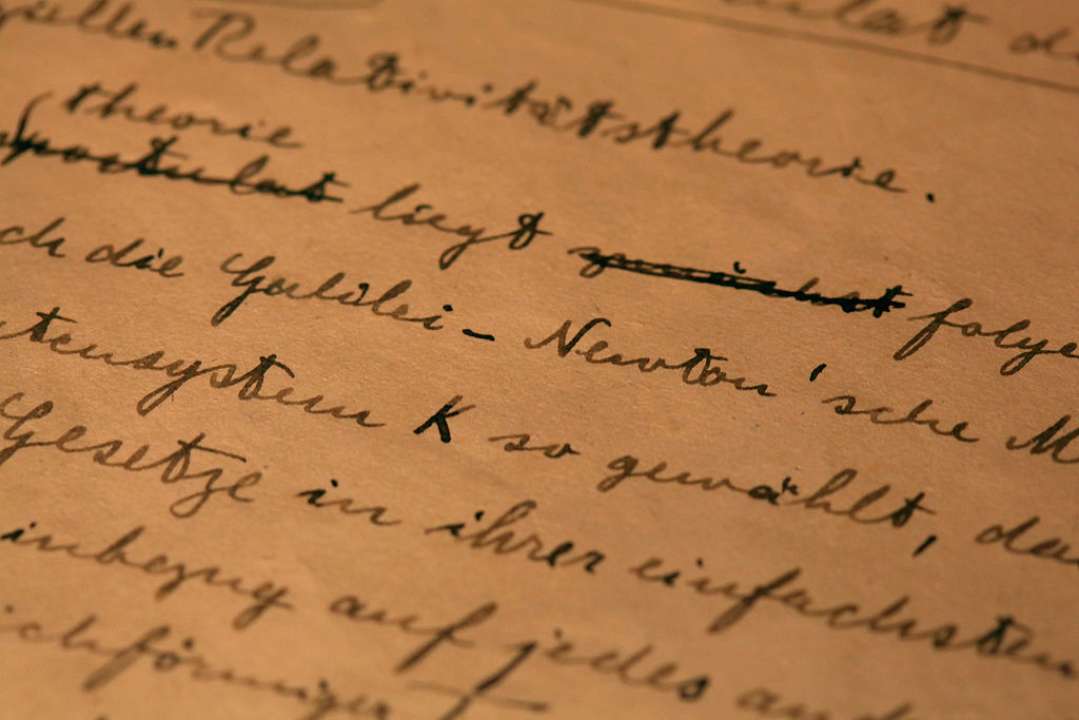 ulat d
ziellen Relativitätstheorie.
theorie
postulat liegt zunächst folge
ch die Galilei-Newton'sche M
tensystem K so gewählt, da
Gesetze in ihrer einfachsten
inbezug auf jedes and
ichförmiger